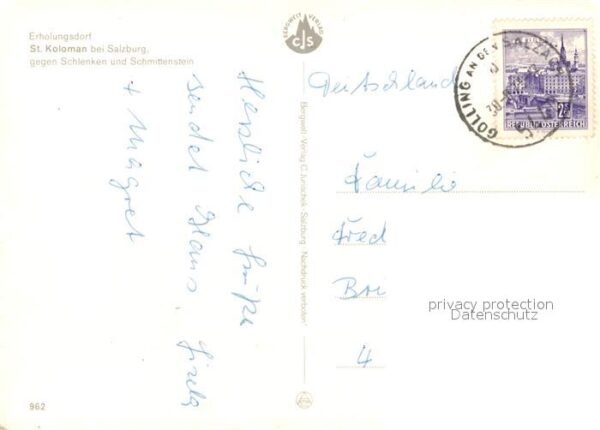 Erholungsdorf
St. Koloman bei Salzburg,
gegen Schlenken und Schmittenstein
Herzliche Grüße
sendet Hans Gisela
+ Magret
BERGWELT VERLAG
CJS
Bergwelt-Verlag C. Jurischek, Salzburg. Nachdruck verboten!
GOLLING AN DER SALZACH
2S
REPUBLIK ÖSTERREICH
Deutschland
Familie
Fred
Boi
4
privacy protection
Datenschutz
962